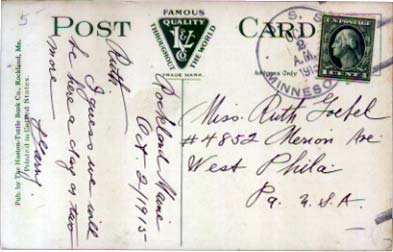 POST CARD
FAMOUS
QUALITY
THROUGHOUT THE WORLD
TRADE MARK
Address Only
S. S.
2
A.M.
1915
MINNESO
U.S. POSTAGE
1 CENT 1
Pub. by The Huston-Tuttle Book Co., Rockland, Me.
Printed in United States.
Rockland Maine
Oct. 2/1915
Ruth
I guess we will
be here a day or two
more
Miss. Ruth Goebel
# 4852 Merion Ave
West Phila
Pa. U.S.A.